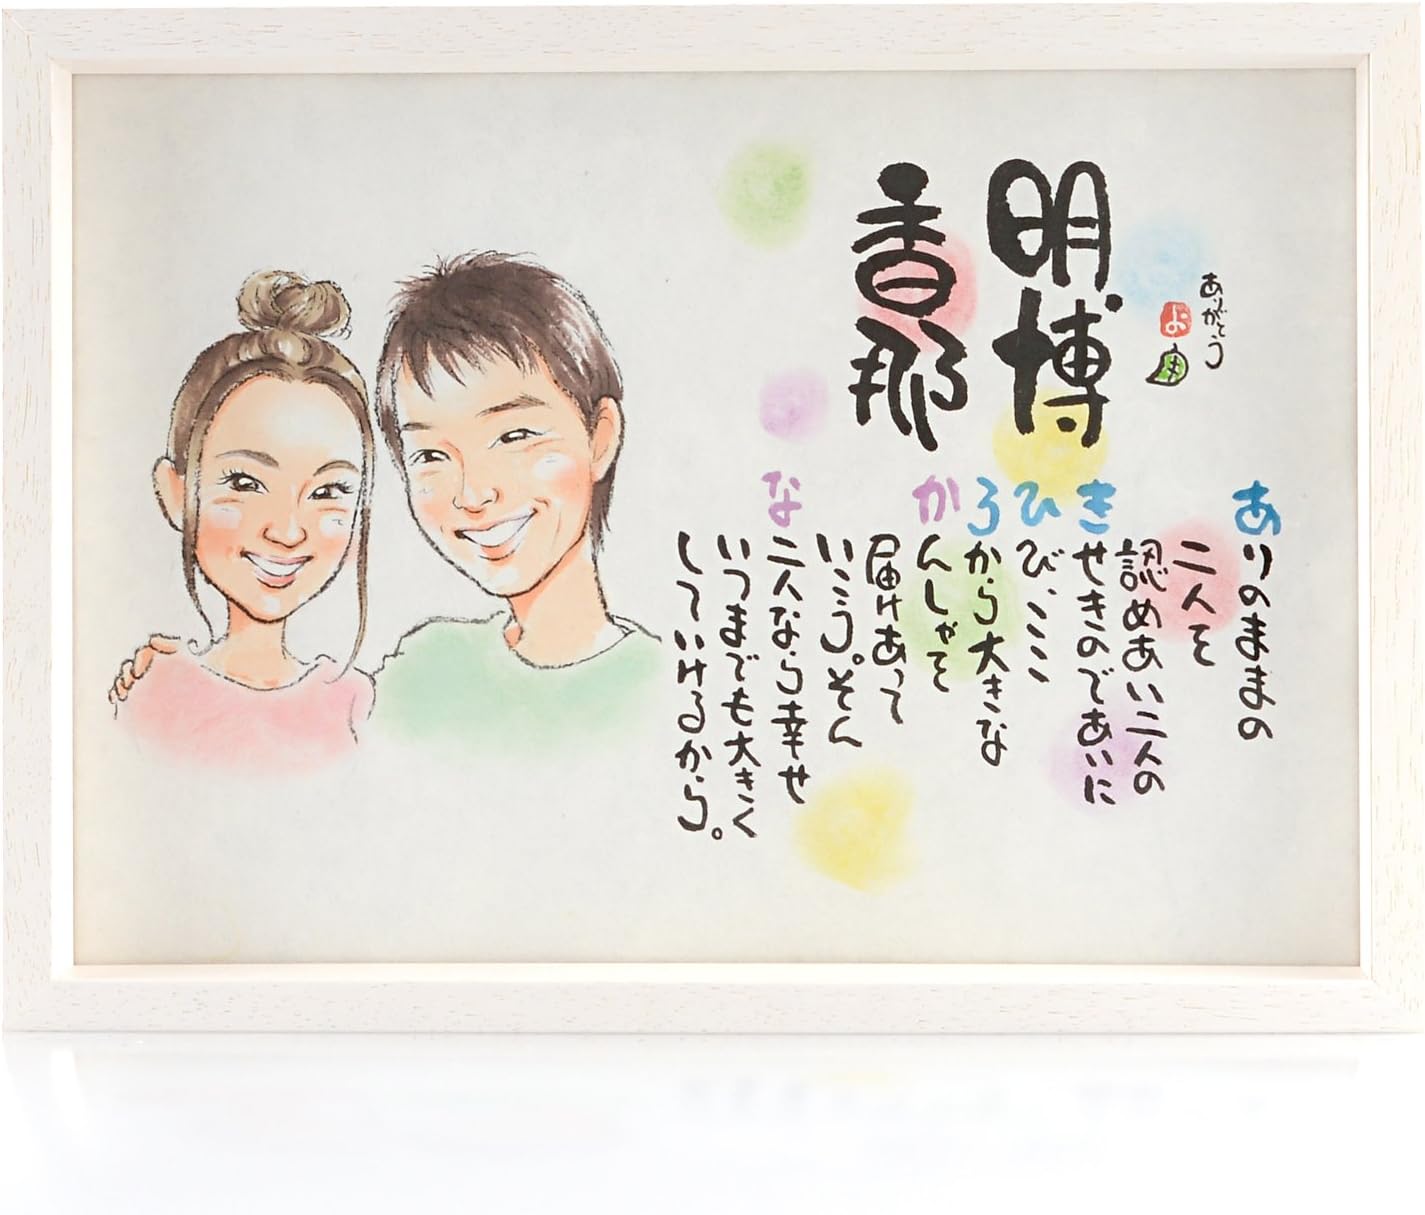 ありがとう
よ
明博
香那
ありのままの
二人を
認めあい二人の
きせきのであいに
ひび、ここ
ろから大きな
かんしゃを
届けあって
いこう。そん
な二人なら幸せ
いつまでも大きく
していけるから。